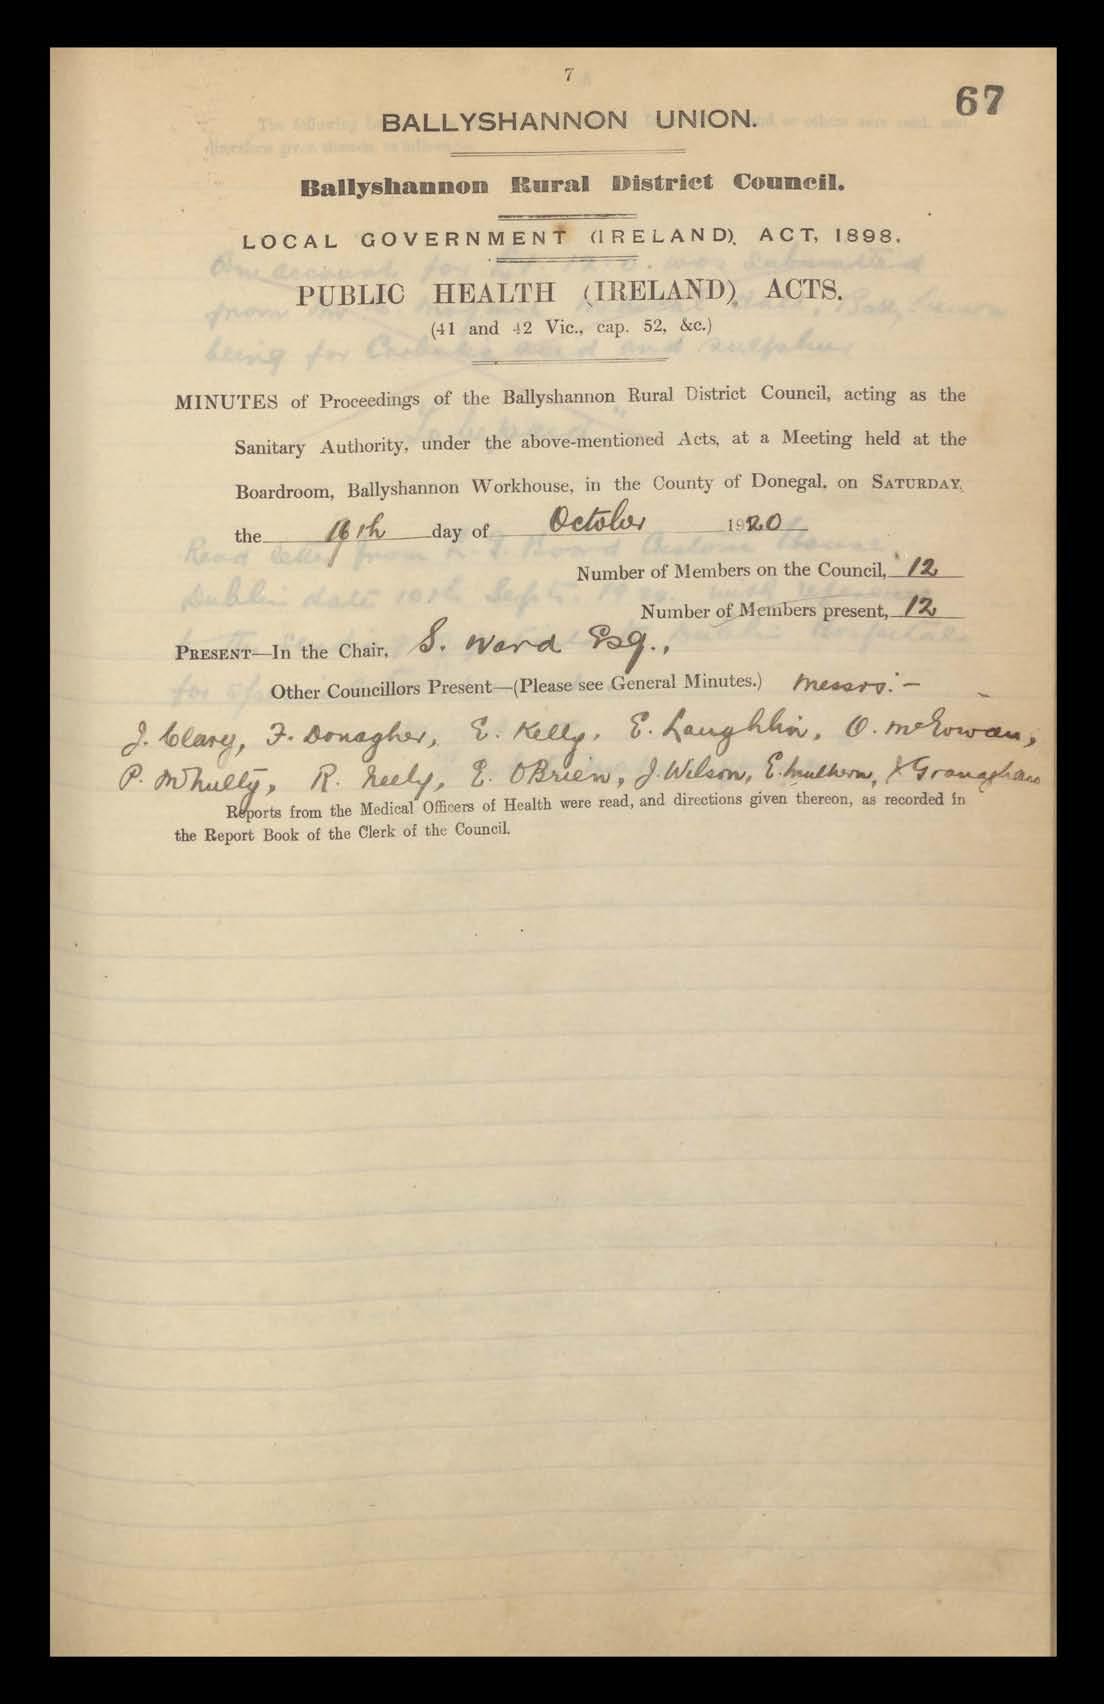 7
67
BALLYSHANNON UNION.
Ballyshannon Rural District Council.
LOCAL GOVERNMENT (IRELAND), ACT, 1898.
PUBLIC HEALTH (IRELAND), ACTS.
(41 and 42 Vic., cap. 52, &c.)
MINUTES of Proceedings of the Ballyshannon Rural District Council, acting as the
Sanitary Authority, under the above-mentioned Acts, at a Meeting held at the
Boardroom, Ballyshannon Workhouse, in the County of Donegal, on SATURDAY,
the 16th day of October 1920
Number of Members on the Council, 12
Number of Members present, 12
PRESENT—In the Chair, S. Ward Esq.,
Other Councillors Present—(Please see General Minutes.) Messrs:—
J. Cleary, F. Donagher, E. Kelly, E. Laughlin, O. McGowan,
P. McNulty, R. Neely, E. OBrien, J. Wilson, E. Mulhern, Granaghan
Reports from the Medical Officers of Health were read, and directions given thereon, as recorded in
the Report Book of the Clerk of the Council.